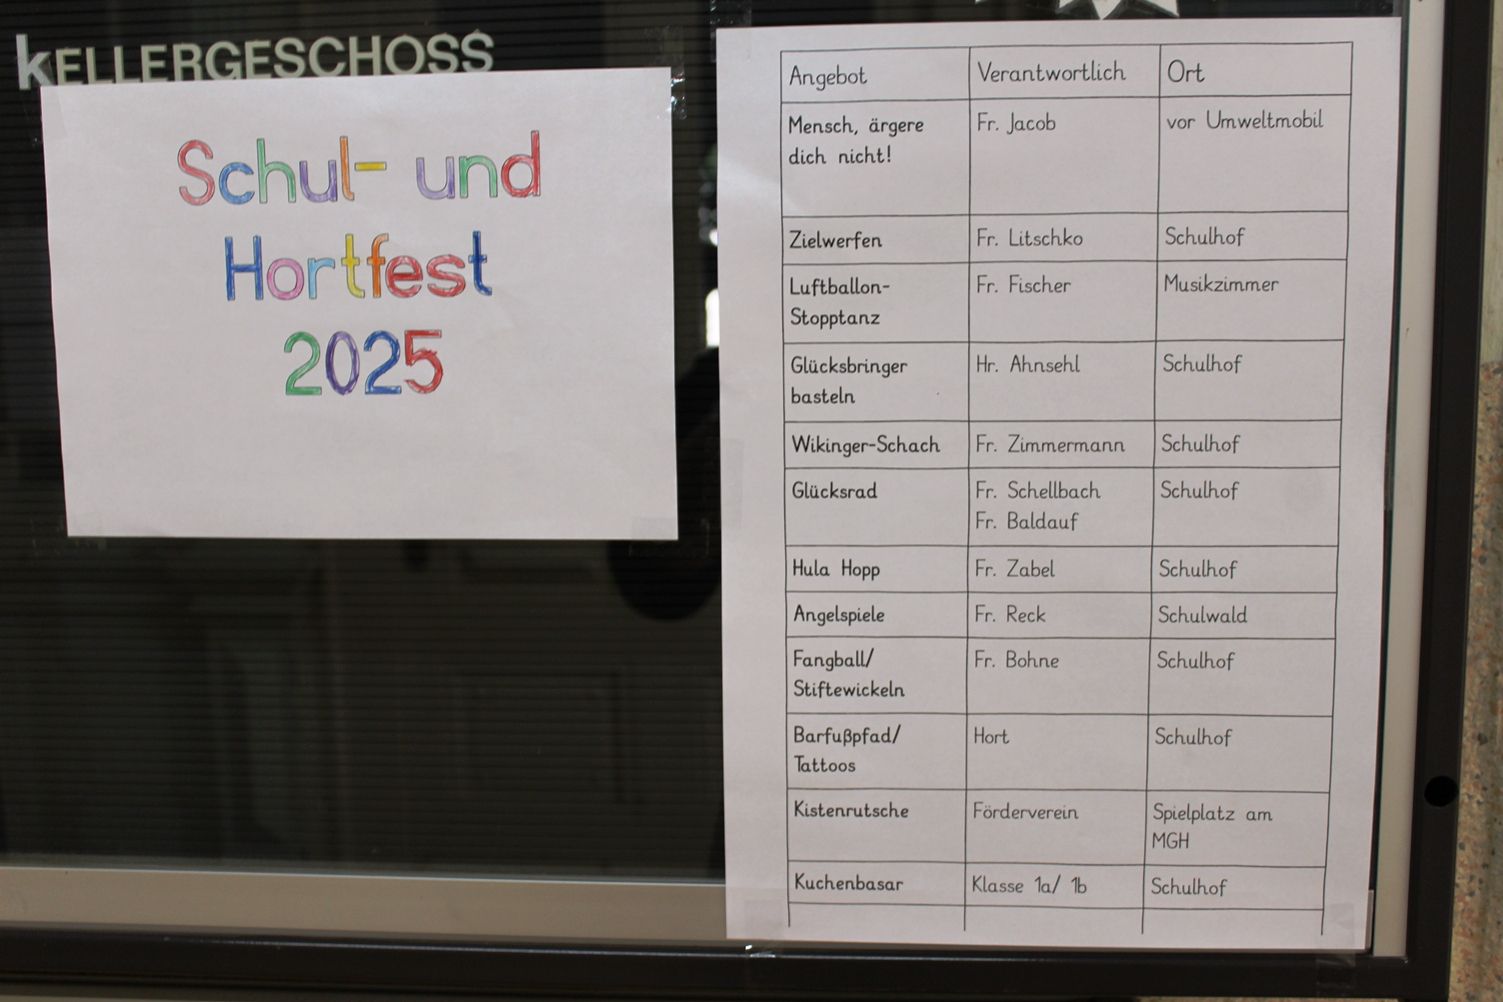 KELLERGESCHOSS
Schul- und
Hortfest
2025
Angebot Verantwortlich Ort
Mensch, ärgere Fr. Jacob vor Umweltmobil
dich nicht!
Zielwerfen Fr. Litschko Schulhof
Luftballon- Fr. Fischer Musikzimmer
Stopptanz
Glücksbringer Hr. Ahnsehl Schulhof
basteln
Wikinger-Schach Fr. Zimmermann Schulhof
Glücksrad Fr. Schellbach Schulhof
Fr. Baldauf
Hula Hopp Fr. Zabel Schulhof
Angelspiele Fr. Reck Schulwald
Fangball/ Fr. Bohne Schulhof
Stiftewickeln
Barfußpfad/ Hort Schulhof
Tattoos
Kistenrutsche Förderverein Spielplatz am
MGH
Kuchenbasar Klasse 1a/ 1b Schulhof